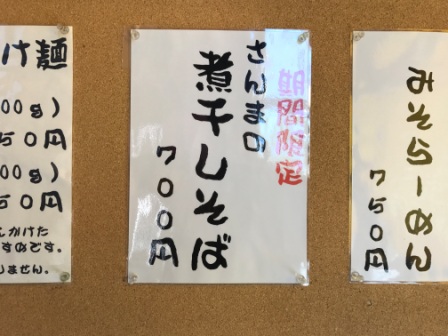 みそらーめん
７５０円
期間限定
さんまの
煮干しそば
７００円
け麺
００ｇ）
５０円
００ｇ）
５０円
んかけた
すめです。
しません。